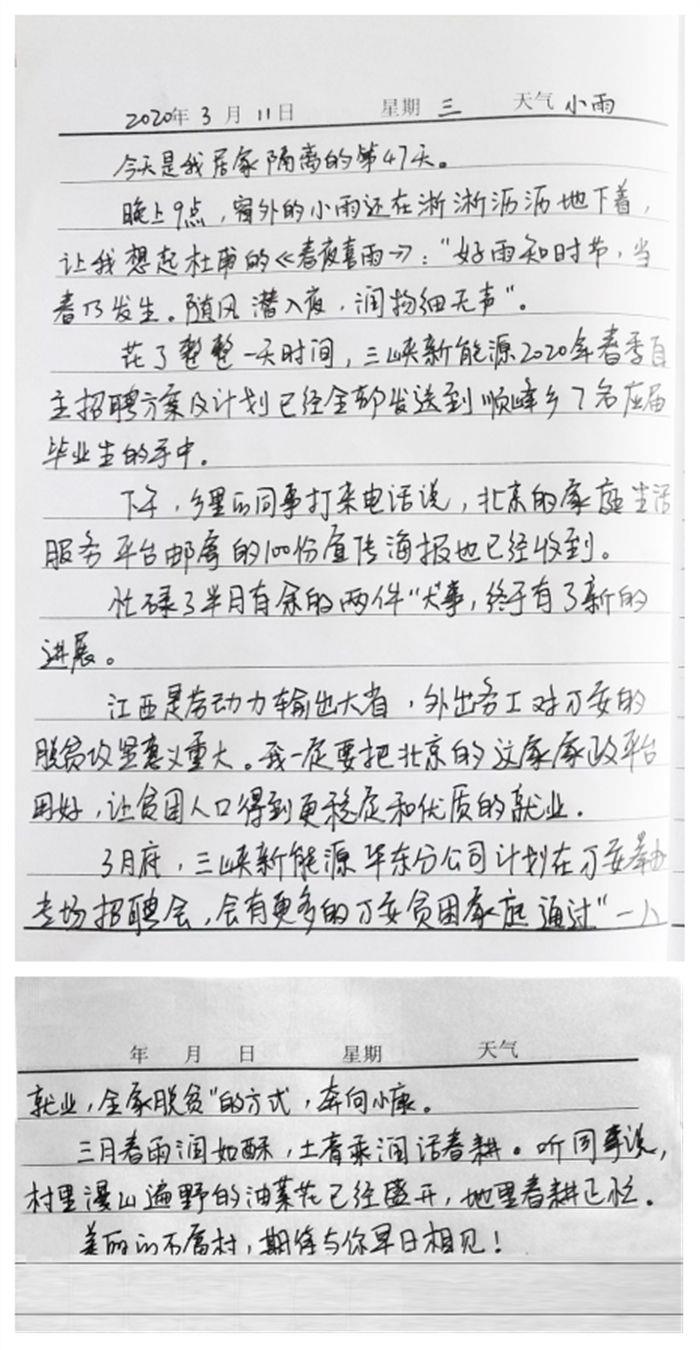 2020年 3 月 11 日 星期 三 天气 小雨
今天是我居家隔离的第47天。
晚上9点，窗外的小雨还在淅淅沥沥地下着，
让我想起杜甫的《春夜喜雨》：“好雨知时节，当
春乃发生。随风潜入夜，润物细无声”。
花了整整一天时间，三峡新能源2020年春季自
主招聘方案及计划已经全部发送到顺峰乡7名应届
毕业生的手中。
下午，乡里的同事打来电话说，北京的家庭生活
服务平台邮寄的100份宣传海报也已经收到。
忙碌了半月有余的两件“大事，终于有了新的
进展。
江西是劳动力输出大省，外出务工对万安的
脱贫攻坚意义重大。我一定要把北京的这家家政平台
用好，让贫困人口得到更稳定和优质的就业.
3月底，三峡新能源华东分公司计划在万安举办
专场招聘会，会有更多的万安贫困家庭通过“一人
年 月 日 星期 天气
就业，全家脱贫”的方式，奔向小康。
三月春雨润如酥，土膏乘润活春耕。听同事说，
村里漫山遍野的油菜花已经盛开，地里春耕正忙.
美丽的石 村，期待与你早日相见！